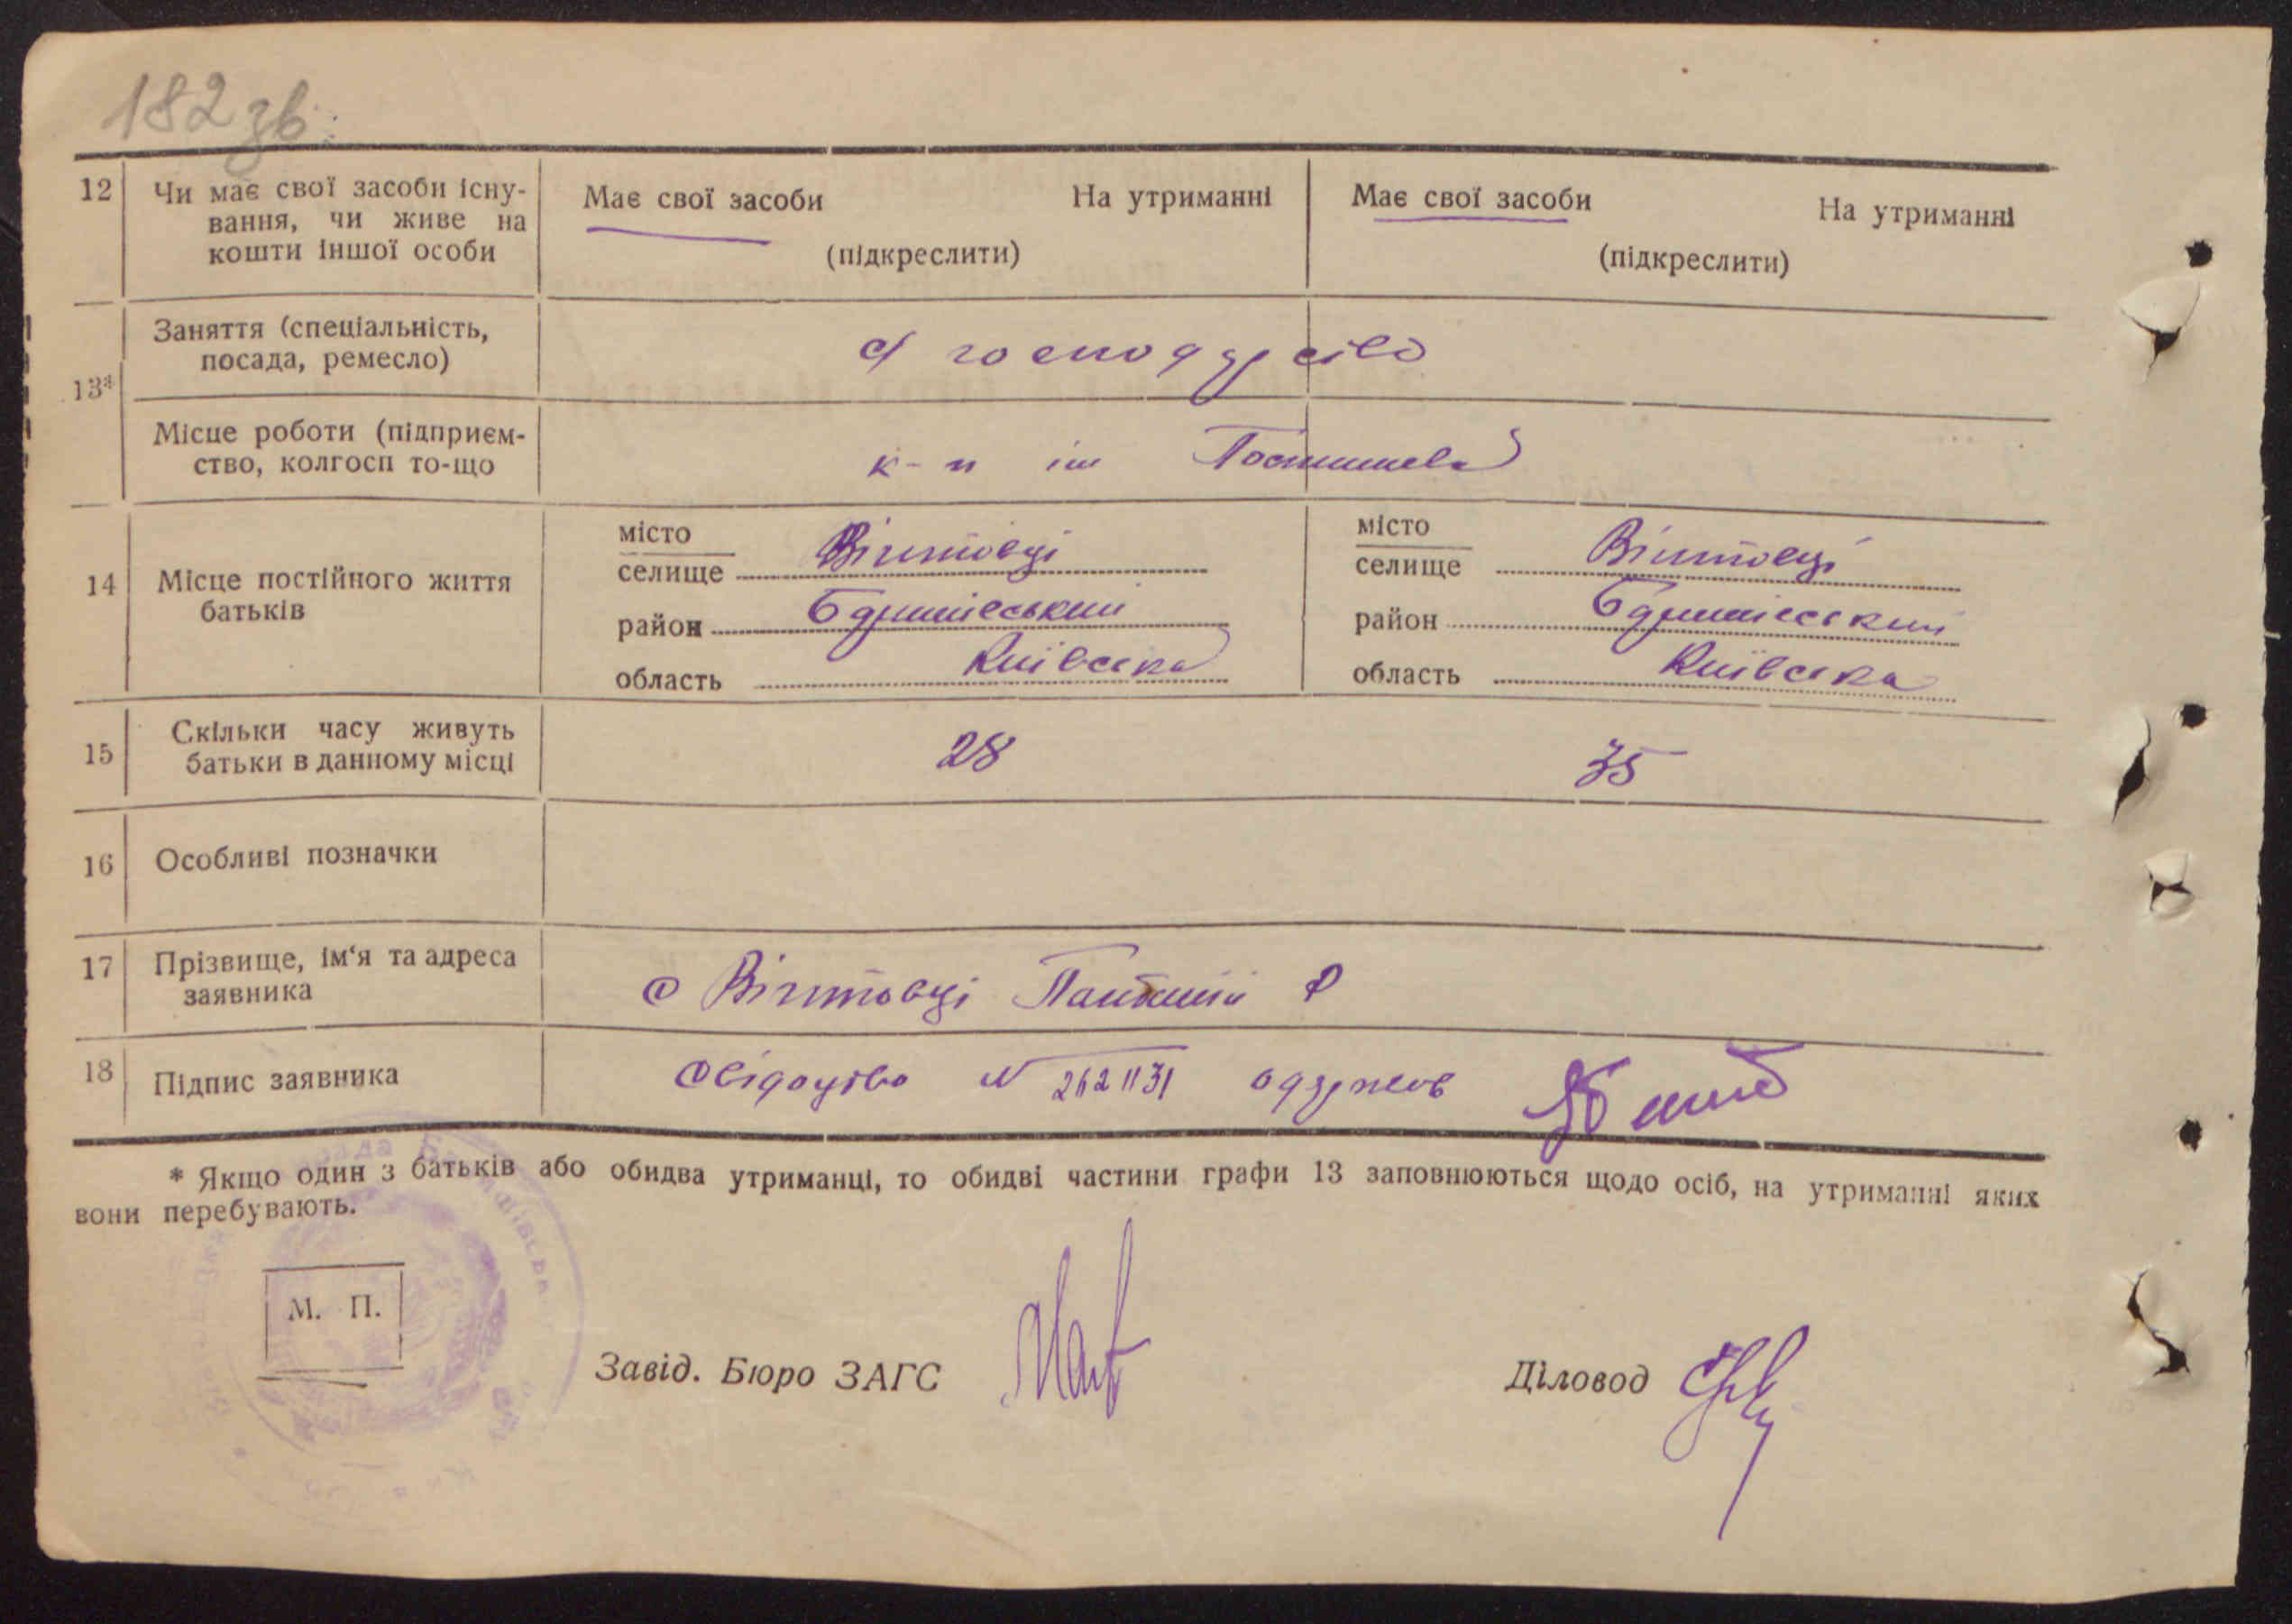 182 зв.
12 Чи має свої засоби існу-
вання, чи живе на
кошти іншої особи
Має свої засоби На утриманні
(підкреслити)
Має свої засоби На утриманні
(підкреслити)
13* Заняття (спеціальність,
посада, ремесло)
с/господарство
Місце роботи (підприєм-
ство, колгосп то-що
к-п ім Постишева
14 Місце постійного життя
батьків
місто
селище Війтовці
район Бориспільський
область Київська
місто
селище Війтовці
район Бориспільський
область Київська
15 Скільки часу живуть
батьки в данному місці
28
35
16 Особливі позначки
17 Прізвище, ім‘я та адреса
заявника
с Війтовці
18 Підпис заявника
Свідоцтво N 2621131 одержав
* Якщо один з батьків або обидва утриманці, то обидві частини графи 13 заповнюються щодо осіб, на утриманні яких
вони перебувають.
М. П.
Завід. Бюро ЗАГС
Діловод